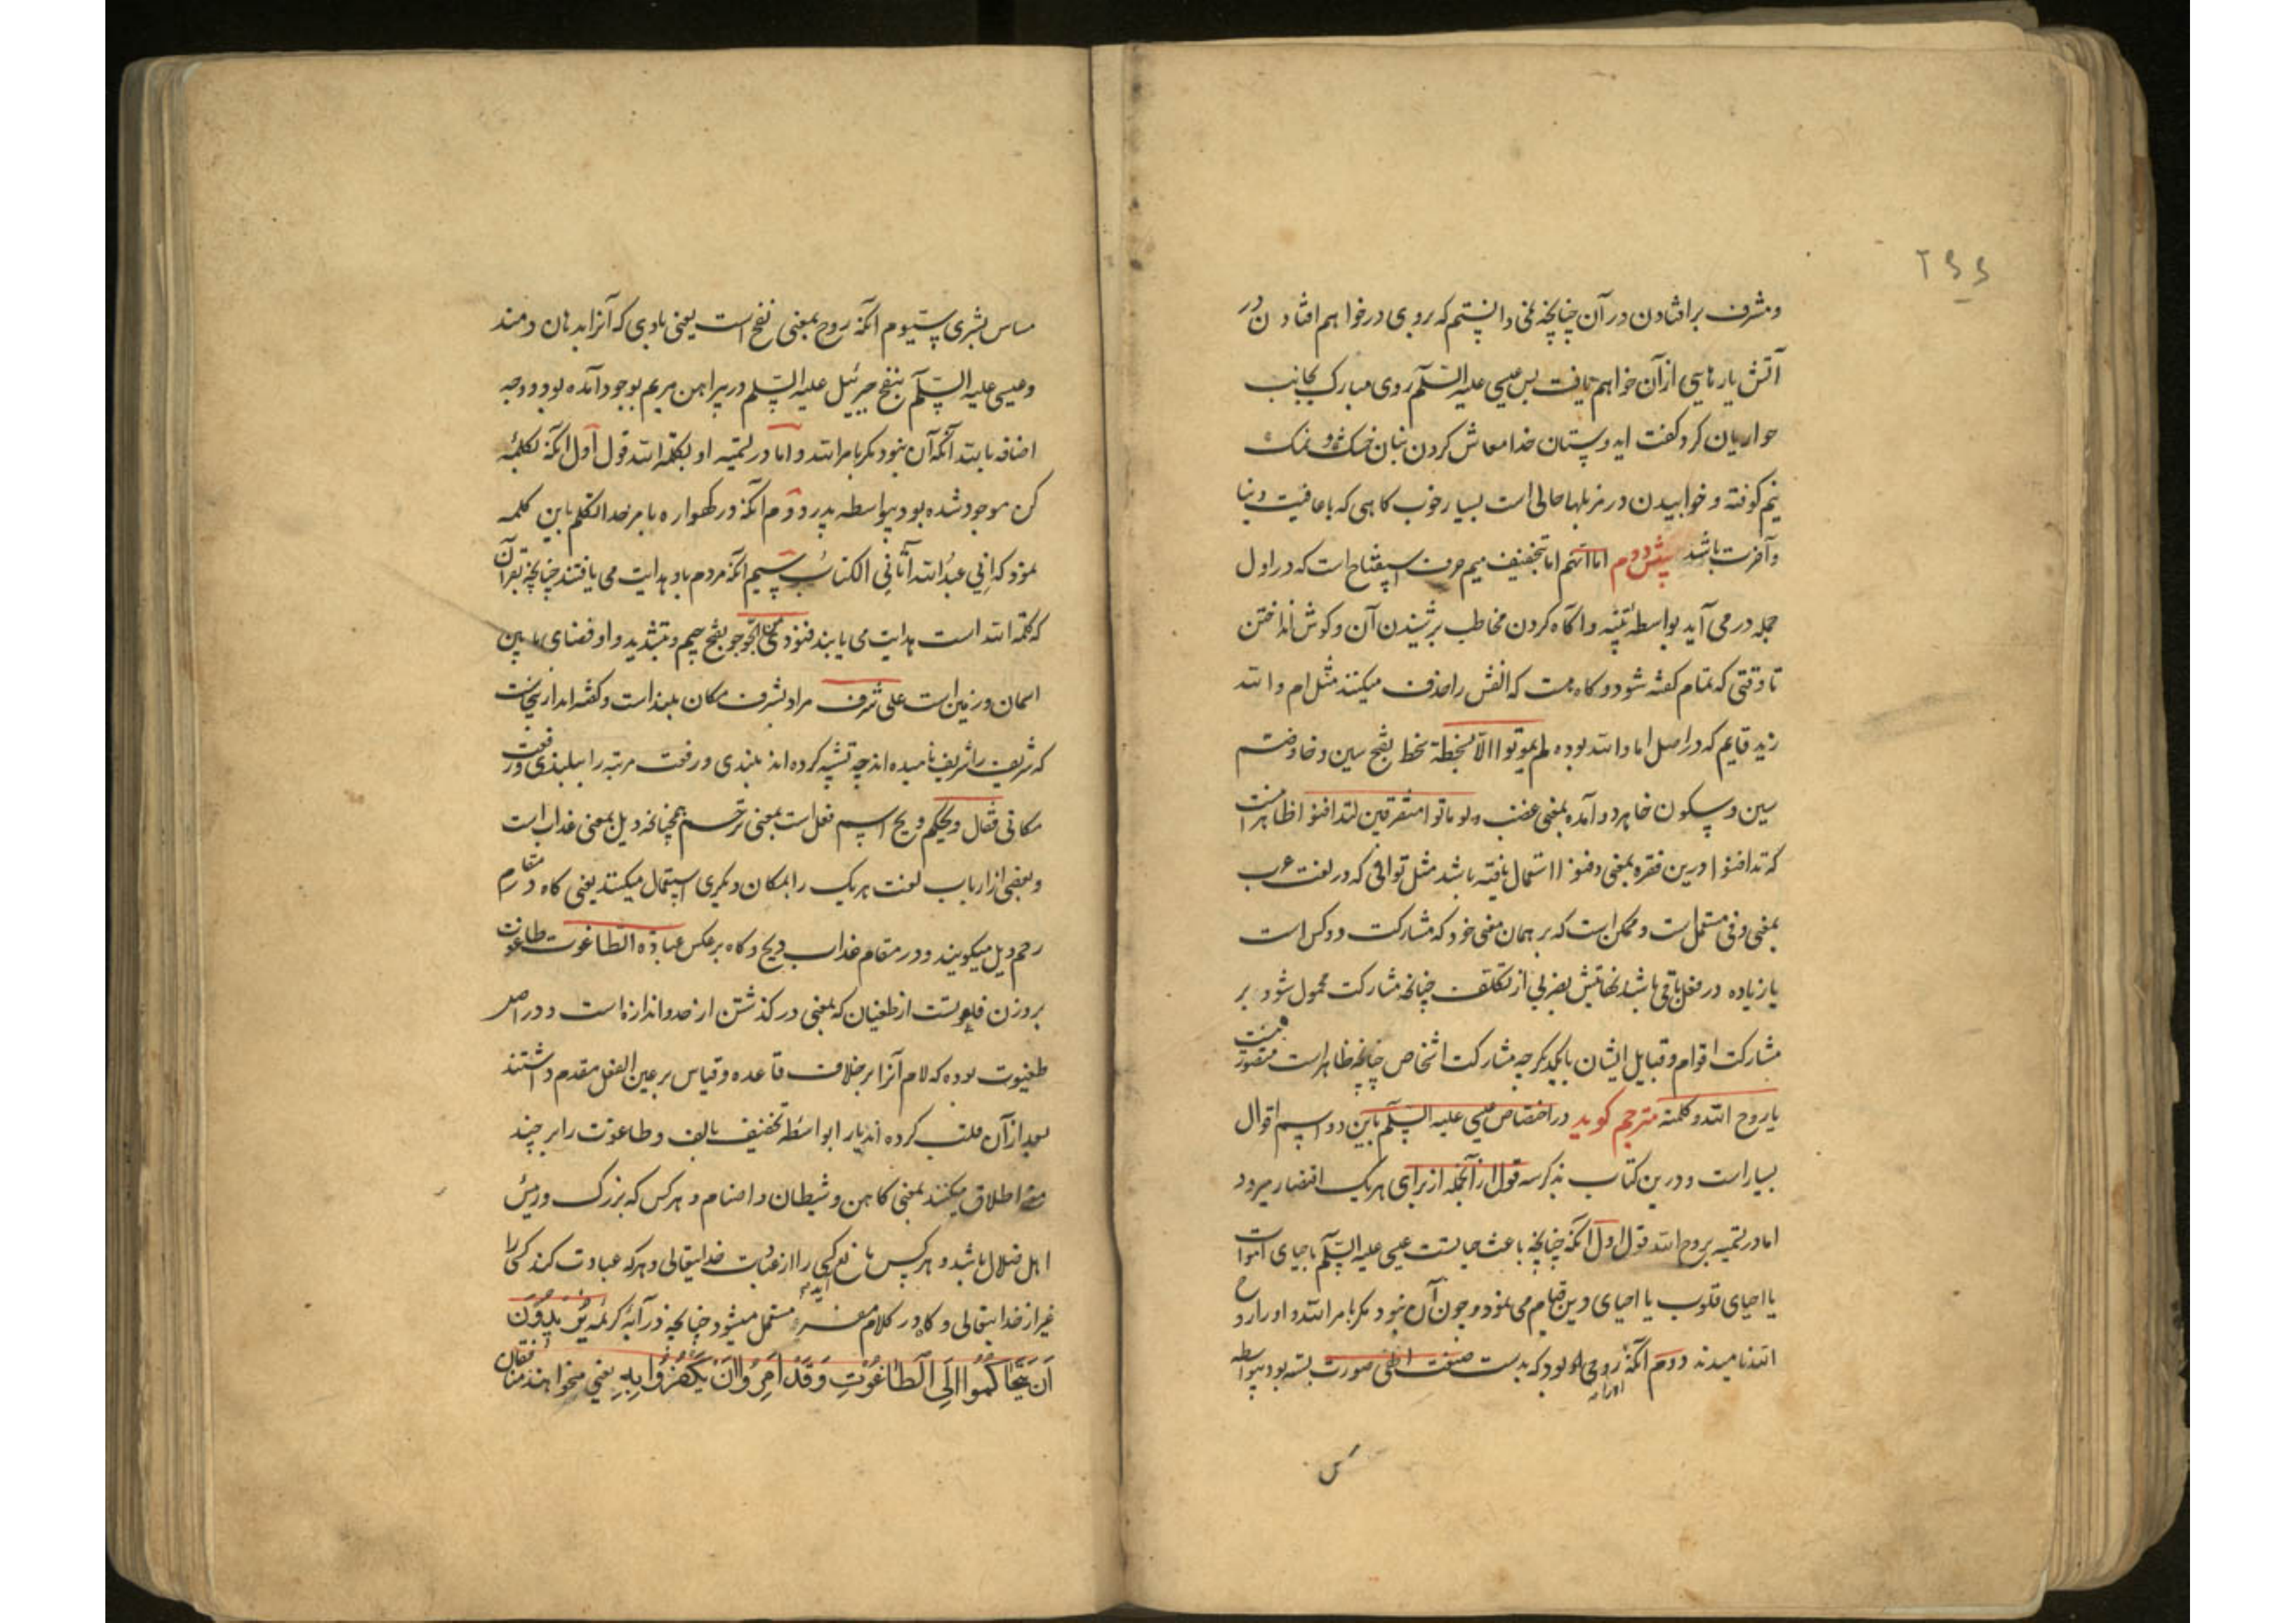 ۲۶۶
ومشرف برافتادن در آن چنانچه نمی دانستم که بروی در خواهم افتاد در
آتش یا رهایی از آن خواهم یافت پس عیسی علیه السلام روی مبارک بجانب
حواریان کرد و گفت ایدوستان خدا معاش کردن بنان خشک و نمک
نیم کوفته و خوابیدن در مزبلها حالی است بسیار خوب کاهی که با عافیت دنیا
وآخرت باشد اما انهم اما بتخفیف میم حرف استفتاح است که در اول
جمله در می آید بواسطه تنبیه و اکاه کردن مخاطب بر شنیدن آن و کوش انداختن
تا وقتی که تمام کفته شود و کاه هست که الفش را حذف میکنند مثل ام والله
زید قایم که در اصل اما والله بوده لم یموتوا الا بسخطة سخط بفتح سین وخا وضم
سین و سکون خا هر دو آمده بمعنی غضب ولو ماتوا متفرقین لتدافنوا ظاهرا
که تدافنوا درین فقره بمعنی دفنوا استعمال یافته باشد مثل توافی که در لغت عرب
بمعنی وفی مستعمل است و ممکن است که بر همان معنی خود که مشارکت دو کس است
یا زیاده در فعل باقی باشد نهایتش بضربی از تکلف چنانچه مشارکت محمول شود بر
مشارکت اقوام و قبایل ایشان با یکدیکر چه مشارکت اشخاص چنانچه ظاهر است متصور نیست
یا روح الله وکلمته مترجم کوید در اختصاص عیسی علیه السلام باین دو اسم اقوال
بسیار است و درین کتاب بذکر سه قول از آنجمله از برای هر یک اقتصار میرود
اما در تسمیه بروح الله قول اول آنکه چنانچه باعث حیاتست عیسی علیه السلام باحیای اموات
یا احیای قلوب یا احیای دین قیام می نمود و چون آن نبود مکر بامر الله او را روح
الله نامیدند دوم آنکه روحی او بود که بدست صنعت صورت بسته بود بواسطه
مساس بشری سیوم آنکه روح بمعنی نفخ است یعنی بادی که آنرا بدهان دمند
و عیسی علیه السلام بنفخ جبرئیل علیه السلام در پیراهن مریم بوجود آمده بود و وجه
اضافه بالله آنکه آن نبود مکر بامر الله و اما در تسمیه او بکلمة الله قول اول آنکه بکلمهٔ
کن موجود شده بود بیواسطه پدر دوم آنکه در کهواره بامر خدا تکلم باین کلمه
نمود که انی عبد الله آتانی الکتاب سیم آنکه مردم باو هدایت می یافتند چنانچه بقرآن
که کلمة الله است هدایت می یابند فنودی الجو جو بفتح جیم و تشدید واو فضای مابین
اسمان و زمین است علی شرف مراد بشرف مکان بلند است و کفته اند ازینجاست
که شریف را شریف نامیده اند چه تشبیه کرده اند بلندی و رفعت مرتبه را ببلندی و رفعت
مکانی فقال ویحکم ویح اسم فعل است بمعنی ترحم همچنانچه ویل بمعنی عذاب است
و بعضی از ارباب لغت هر یک را بمکان دیکری استعمال میکنند یعنی کاه در مقام
رحم ویل میکویند و در مقام عذاب ویح و کاه برعکس عبادة الطاغوت طاغوت
بر وزن فلعوتست از طغیان که بمعنی در کذشتن از حد و اندازه است و در اصل
طغیوت بوده که لام آنرا بر خلاف قاعده و قیاس بر عین الفعل مقدم داشتند
بعد از آن قلب کرده اند یا را بواسطه تخفیف بالف و طاغوت را بر چند
معنی اطلاق میکنند بمعنی کاهن و شیطان و اصنام و هر کس که بزرک و رئیس
اهل ضلال باشد و هر کس مانع کسی را از عبادت خدایتعالی و هر که عبادت کند کسی را
غیر از خدایتعالی و کاه در کلام مستعمل میشود چنانچه در آیهٔ کریمه یریدون
اَن یَتَحاکَمُوا اِلَی الطّاغُوتِ وَقَد اُمِرُوا اَن یَکفُرُوا بِهِ یعنی میخواهند منافقان